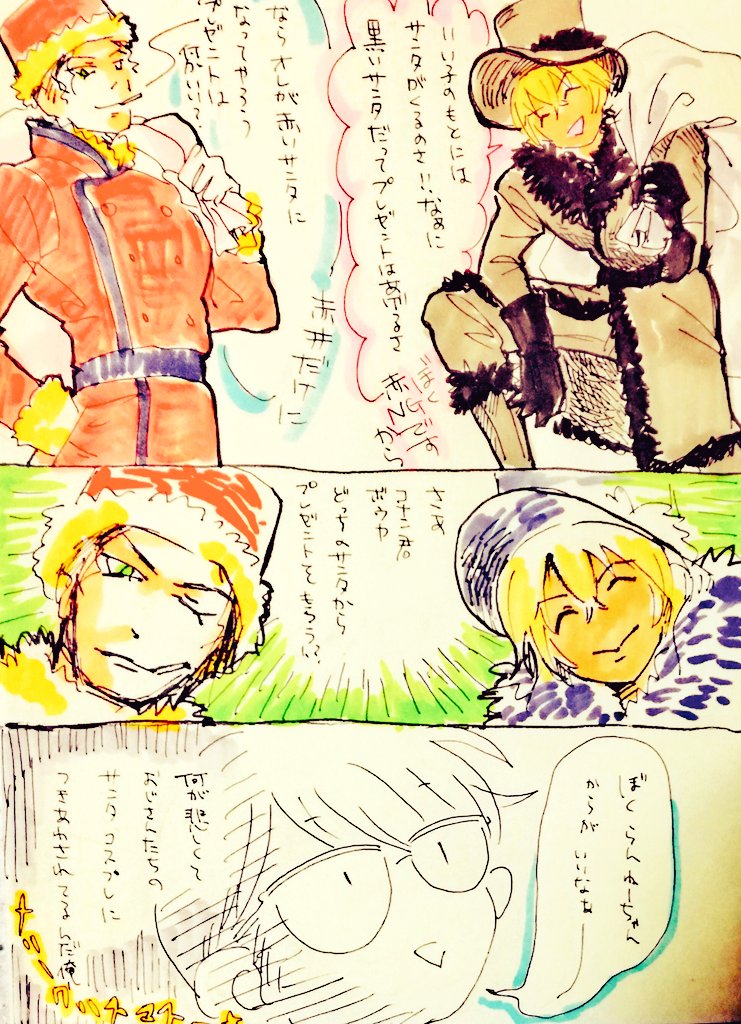 いい子のもとには
サンタがくるのさ!!なぁに
黒いサンタだってプレゼントはあげるさ
ぼく
から
ならオレが赤いサンタに
なってやろう
プレゼントは
何がいい?
赤井だけに
さあ
コナン君
ボウヤ
どっちのサンタから
プレゼントをもらう!?
ぼく らんねーちゃん
からが いいなぁ
何が悲しくて
おじさんたちの
サンタコスプレに
つきあわされてるんだ俺